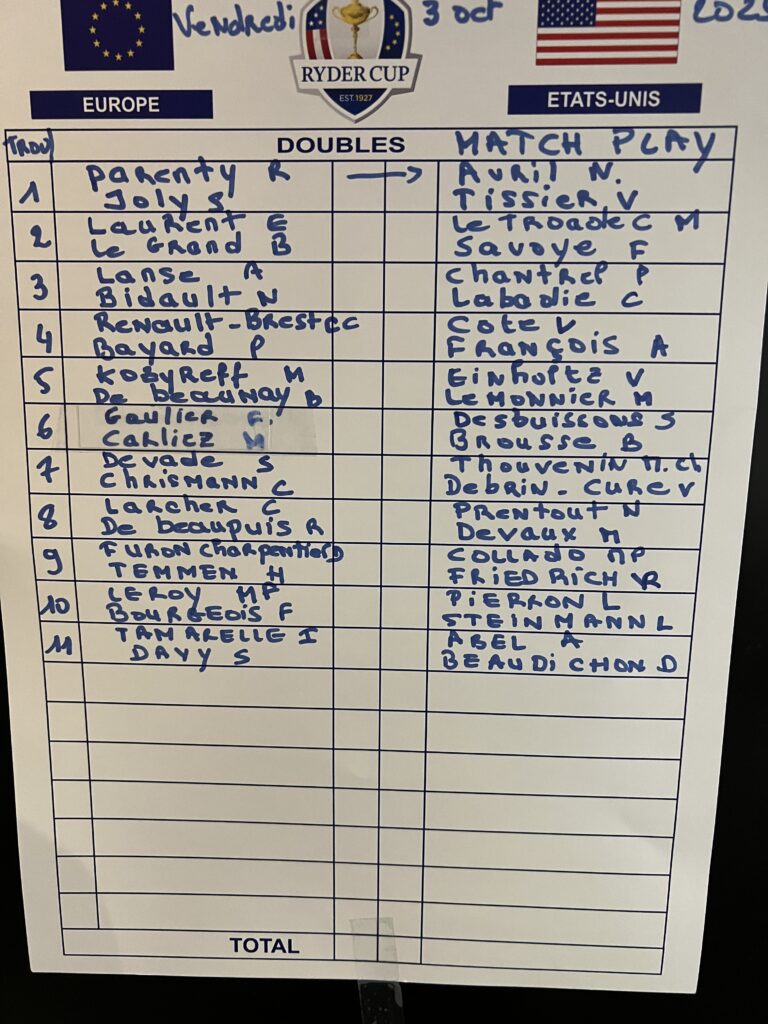 Vendredi 3 oct 202
RYDER CUP
EST. 1927
EUROPE ETATS-UNIS
TROU DOUBLES MATCH PLAY
1 Parenty R → Avril N.
Joly S Tissier V
2 Laurent E Le Troadec M
Le Grand B Savoye F
3 Lanse A Chantrel P
Bidault N Labadie C
4 Renault-Brest CC Cote V
Bayard P François A
5 Kobyreff M Einholtz V
De beaunay B Lemonnier M
6 Gaulier F. Desbuissons S
Carliez M Brousse B
7 Devade S Thouvenin M.Ch
Chrismann C Debrin-Cure V
8 Larcher C Prentout N
De beaupuis R Devaux M
9 Furon Charpentier D COLLADO MP
TEMMEN H FRIEDRICH VR
10 LEROY MP PIERRON L
BOURGEOIS F STEINMANN L
11 TAMARELLE I ABEL A
DAVY S BEAUDICHON D
TOTAL